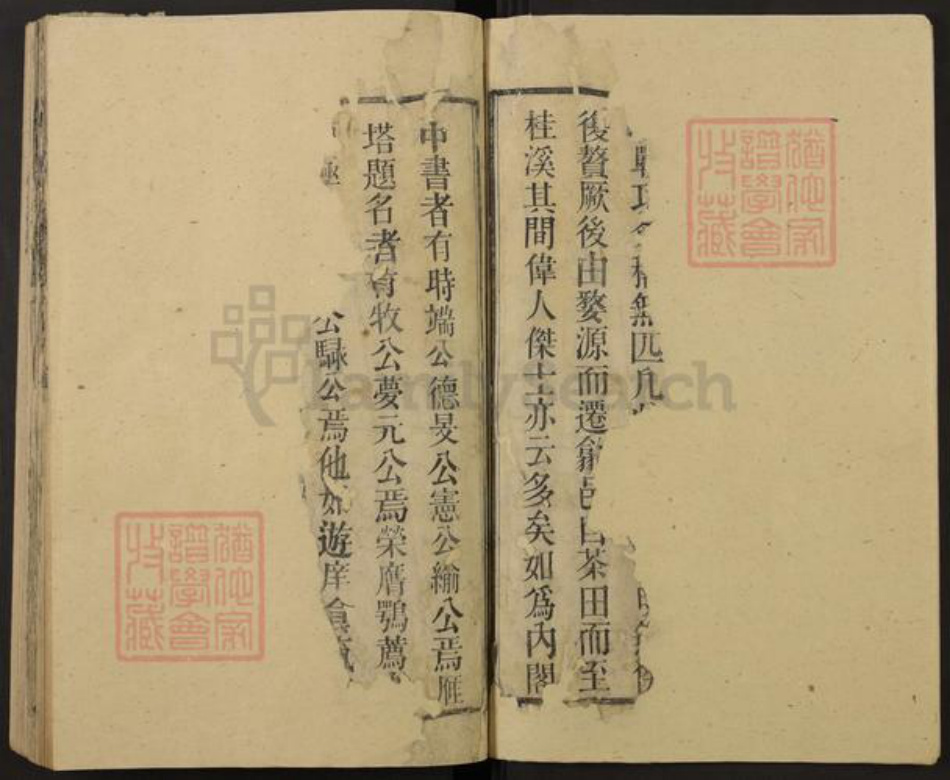 無匹凡
復贅厥後由婺源而遷歙邑由茶田而至
桂溪其間偉人傑士亦云多矣如為內閣
中書者有時端公德旻公憲公綸公焉雁
塔題名者有牧公夢元公焉榮膺鶚薦
公騄公焉他如遊庠食
譜學會
收藏
譜學會
收藏
FamilySearch